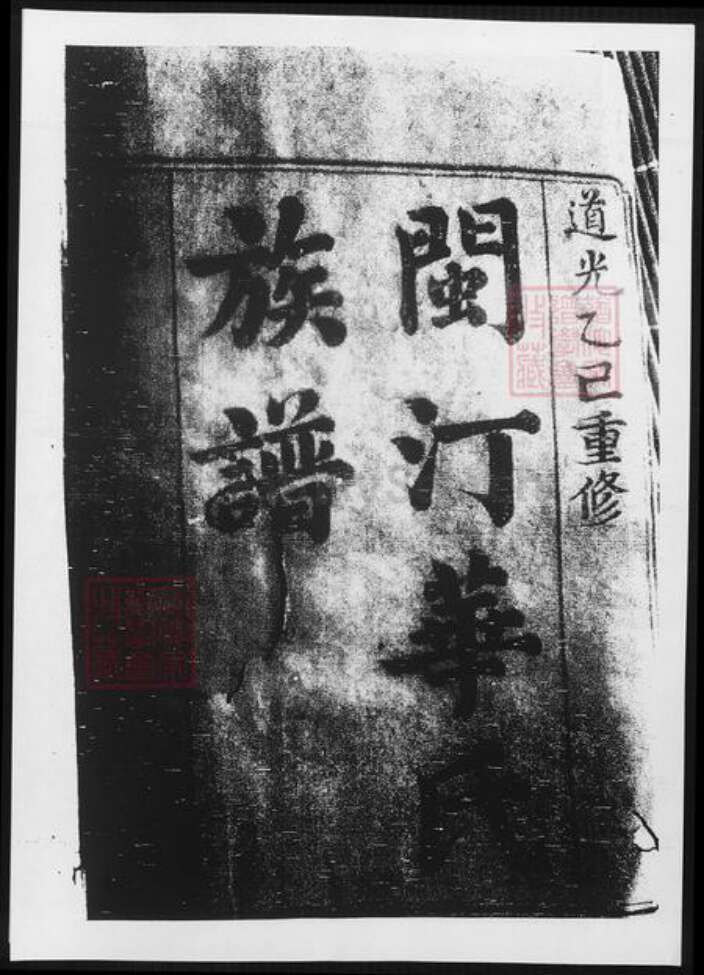 道光乙巳重修
閩汀華氏
族譜